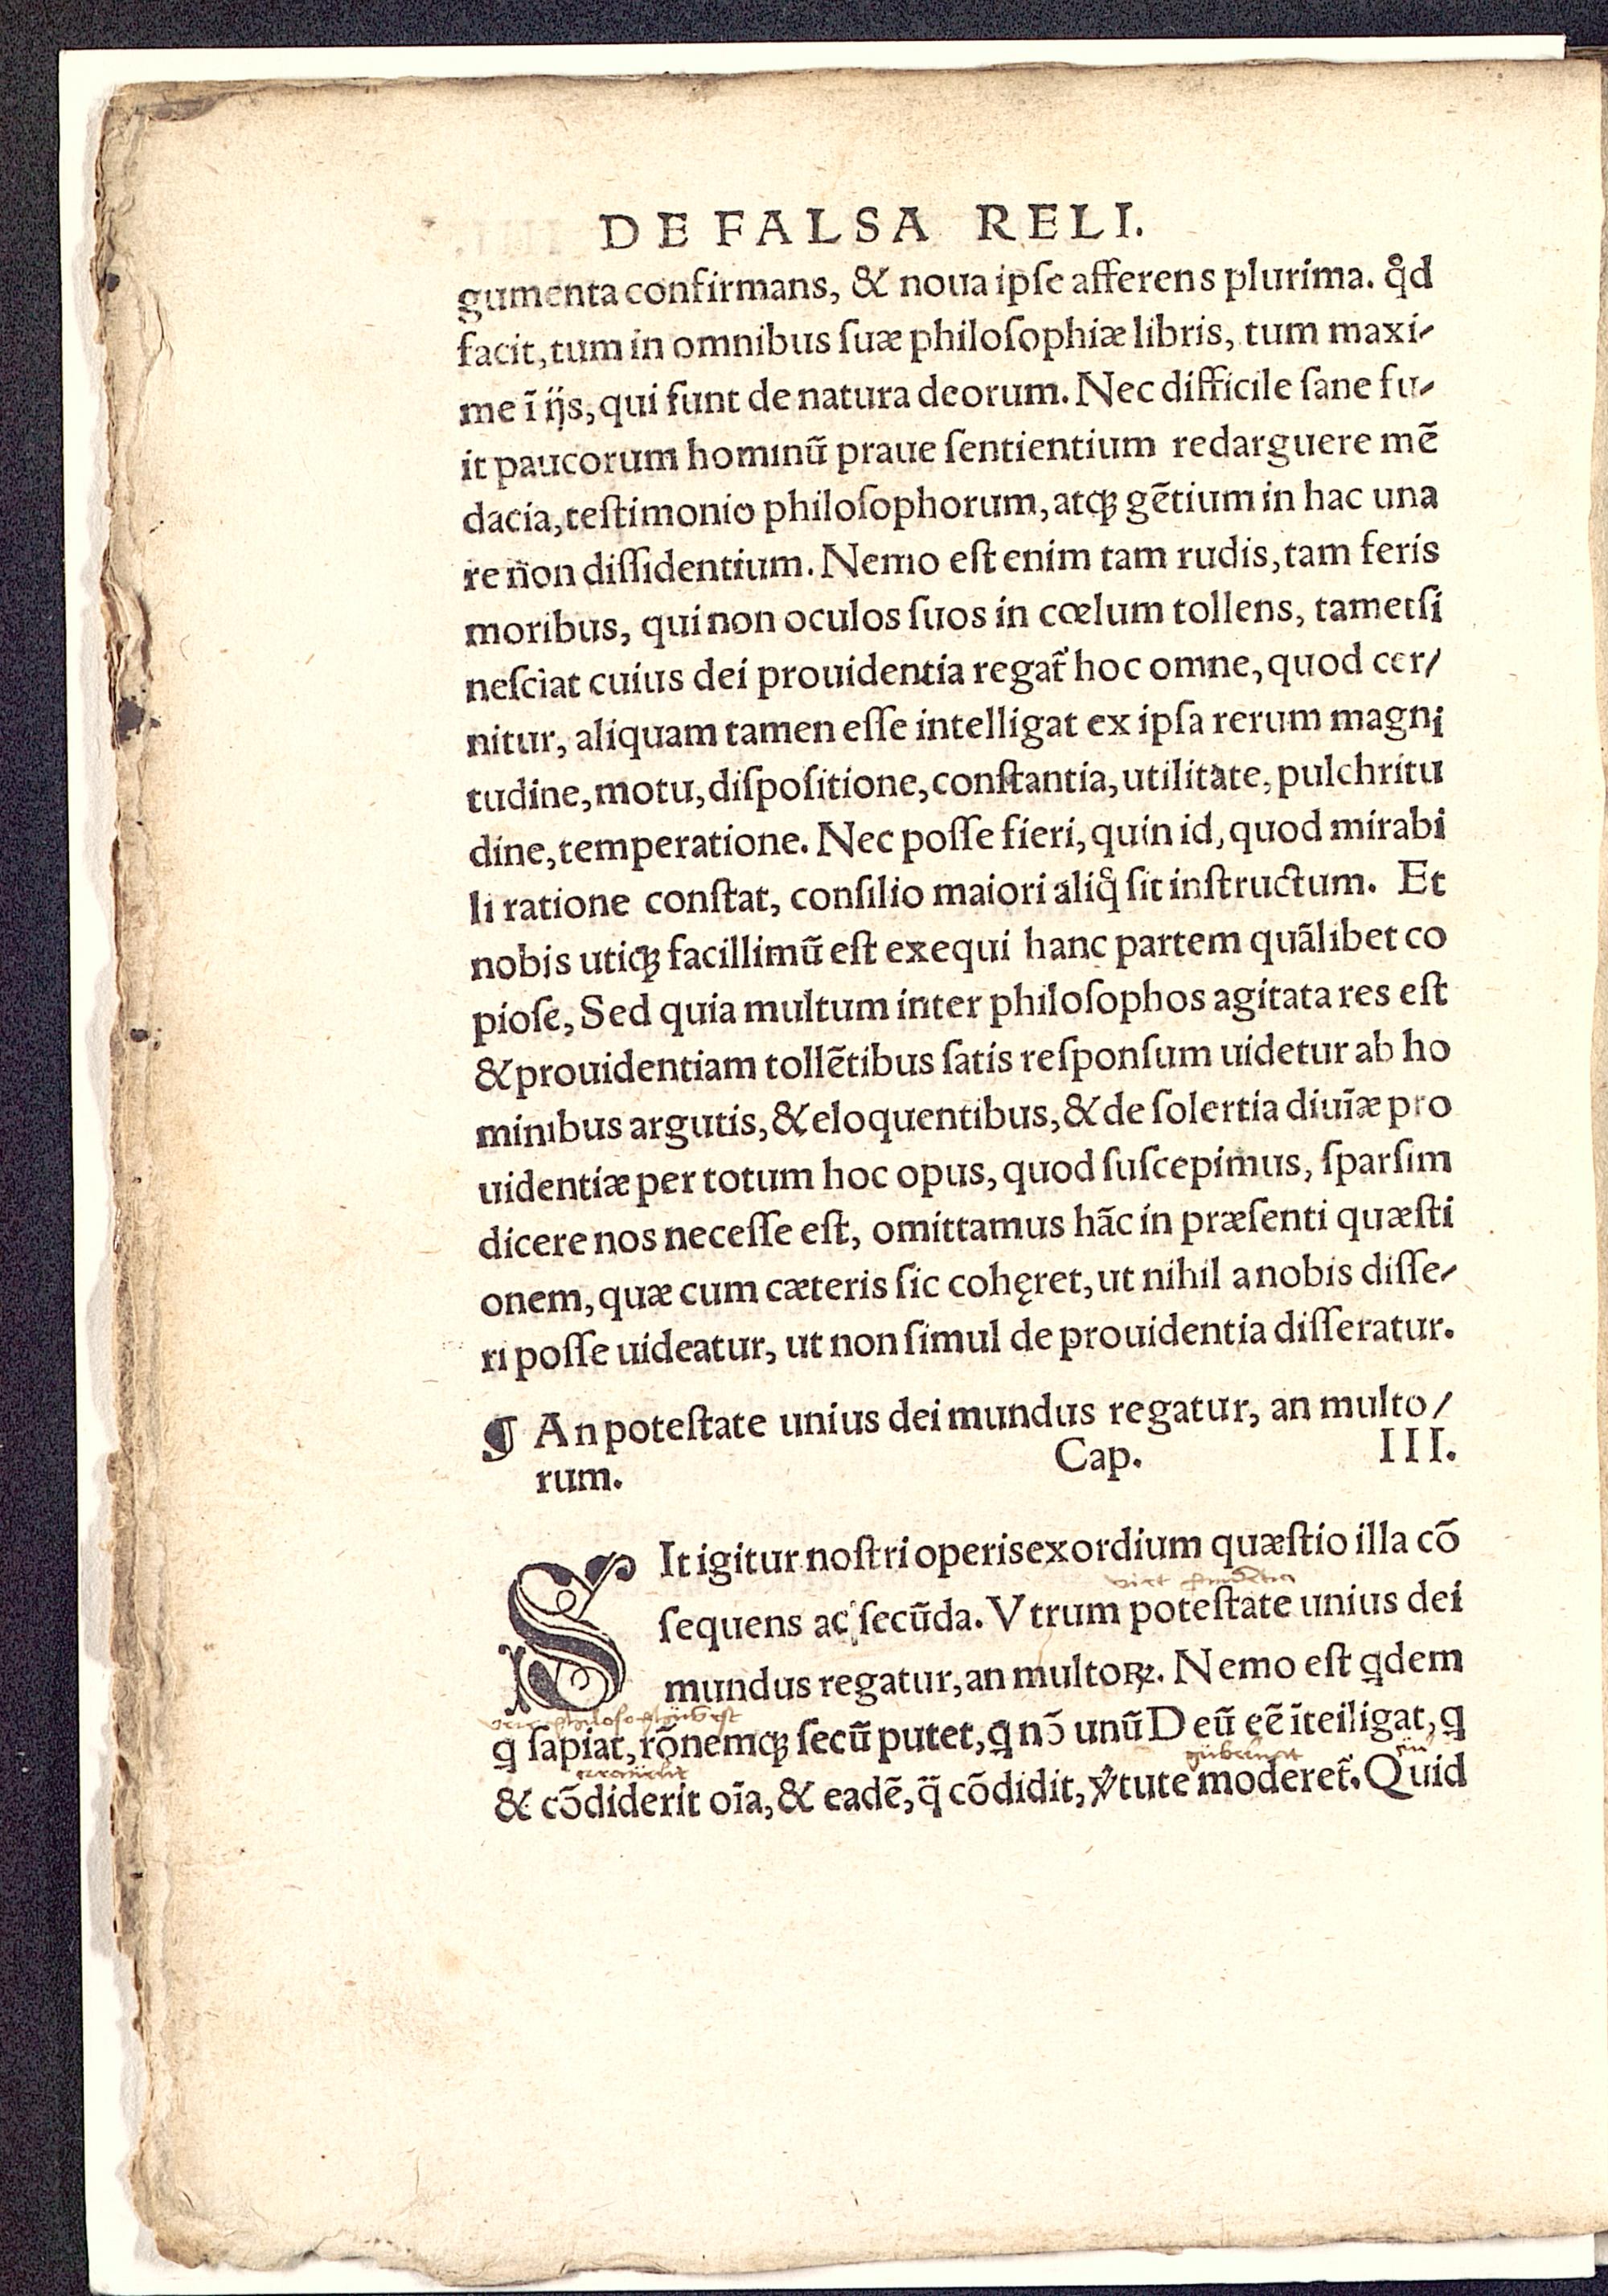 DE FALSA RELI.
gumenta confirmans, & noua ipſe afferens plurima. qͦd
facit, tum in omnibus ſuæ philoſophiæ libris, tum maxi⸗
me ĩ ijs, qui ſunt de natura deorum. Nec difficile ſane fu⸗
it paucorum hominũ praue ſentientium redarguere mẽ
dacia, teſtimonio philoſophorum, atqꝫ gẽtium in hac una
re non diſſidentium. Nemo eſt enim tam rudis, tam feris
moribus, qui non oculos ſuos in cœlum tollens, tametſi
neſciat cuius dei prouidentia regat᷑ hoc omne, quod cer/
nitur, aliquam tamen eſſe intelligat ex ipſa rerum magni
tudine, motu, diſpoſitione, conſtantia, utilitate, pulchritu
dine, temperatione. Nec poſſe fieri, quin id, quod mirabi
li ratione conſtat, conſilio maiori aliqͦ ſit inſtructum. Et
nobis utiqꝫ facillimũ eſt exequi hanc partem quãlibet co
pioſe, Sed quia multum inter philoſophos agitata res eſt
& prouidentiam tollẽtibus ſatis reſponſum uidetur ab ho
minibus argutis, & eloquentibus, & de ſolertia diuĩæ pro
uidentiæ per totum hoc opus, quod ſuſcepimus, ſparſim
dicere nos neceſſe eſt, omittamus hãc in præſenti quæſti
onem, quæ cum cæteris ſic cohęret, ut nihil a nobis diſſe⸗
ri poſſe uideatur, ut non ſimul de prouidentia diſſeratur.
¶ An poteſtate unius dei mundus regatur, an multo/
rum. Cap. III.
SIt igitur noſtri operis exordium quæſtio illa cõ
ſequens ac ſecũda. Vtrum poteſtate unius dei
mundus regatur, an multoꝝ. Nemo eſt ꝗdem
ꝗ ſapiat, rõnemqꝫ ſecũ putet, ꝗ nõ unũ Deũ eẽ ĩteiligat, ꝗ
prouidit gubernat
& cõdiderit oĩa, & eadẽ, q̃ cõdidit, v̓tute moderet᷑. Quid